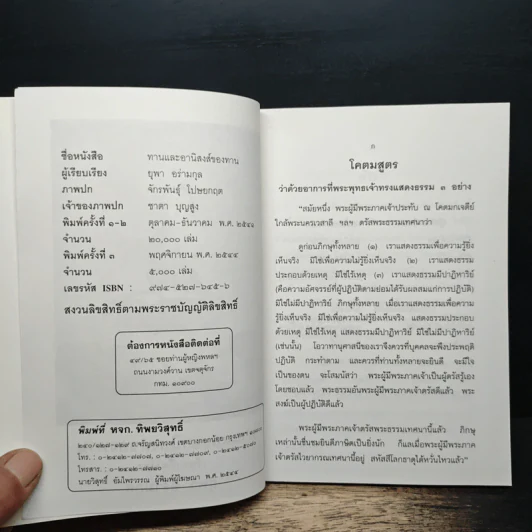 ชื่อหนังสือ ทานและอานิสงส์ของทาน
ผู้เรียบเรียง ยุพา อร่ามกุล
ภาพปก จักรพันธุ์ โปษยกฤต
เจ้าของภาพปก ชาดา บุญสูง
พิมพ์ครั้งที่ ๑-๒ ตุลาคม-ธันวาคม พ.ศ. ๒๕๔๔
จำนวน ๒๐,๐๐๐ เล่ม
พิมพ์ครั้งที่ ๓ พฤศจิกายน พ.ศ. ๒๕๔๔
จำนวน ๕,๐๐๐ เล่ม
เลขรหัส ISBN : ๙๗๔-๕๒๗-๖๔๕-๖
สงวนลิขสิทธิ์ตามพระราชบัญญัติลิขสิทธิ์
ต้องการหนังสือติดต่อที่
๔๙/๖๕ ซอยท่านผู้หญิงพหลฯ
ถนนงามวงศ์วาน เขตจตุจักร
กทม. ๑๐๙๐๐
พิมพ์ที่ หจก. ทิพยวิสุทธิ์
๒๔๐/๑๒๗-๑๒๙ ถ.จรัญสนิทวงศ์ เขตบางกอกน้อย กรุงเทพฯ
โทร. : ๐-๒๔๑๒-๗๗๐๗, ๐-๒๔๑๒-๗๗๐๙,
โทรสาร. : ๐-๒๔๑๒-๗๗๑๐
นายวิสุทธิ์ อัมไพรวรรณ ผู้พิมพ์ผู้โฆษณา พ.ศ. ๒๕๔๔
ก
โคตมสูตร
ว่าด้วยอาการที่พระพุทธเจ้าทรงแสดงธรรม ๓ อย่าง
"สมัยหนึ่ง พระผู้มีพระภาคเจ้าประทับ ณ โคตมกเจดีย์
ใกล้พระนครเวสาลี ฯลฯ ตรัสพระธรรมเทศนาว่า
ดูก่อนภิกษุทั้งหลาย (๑) เราแสดงธรรมเพื่อความรู้ยิ่ง
เห็นจริง มิใช่เพื่อความไม่รู้ยิ่งเห็นจริง (๒) เราแสดงธรรม
ประกอบด้วยเหตุ มิใช่ไร้เหตุ (๓) เราแสดงธรรมมีปาฏิหาริย์
(คือความอัศจรรย์ที่ผู้ปฏิบัติตามย่อมได้รับผลสมแก่การปฏิบัติ)
มิใช่ไม่มีปาฏิหาริย์ ภิกษุทั้งหลาย เมื่อเราแสดงธรรมเพื่อความ
รู้ยิ่งเห็นจริง มิใช่เพื่อความไม่รู้ยิ่งเห็นจริง แสดงธรรมประกอบ
ด้วยเหตุ มิใช่ไร้เหตุ แสดงธรรมมีปาฏิหาริย์ มิใช่ไม่มีปาฏิหาริย์
(เช่นนั้น) โอวาทานุศาสนีของเราจึงควรที่บุคคลจะพึงประพฤติ
ปฏิบัติ กระทำตาม และควรที่ท่านทั้งหลายจะยินดี จะมีใจ
เป็นของตน จะโสมนัสว่า พระผู้มีพระภาคเจ้าเป็นผู้ตรัสรู้เอง
โดยชอบแล้ว พระธรรมอันพระผู้มีพระภาคเจ้าตรัสดีแล้ว พระ
สงฆ์เป็นผู้ปฏิบัติดีแล้ว
พระผู้มีพระภาคเจ้าตรัสพระธรรมเทศนานี้แล้ว ภิกษุ
เหล่านั้นชื่นชมยินดีภาษิตเป็นยิ่งนัก ก็แลเมื่อพระผู้มีพระภาค
เจ้าตรัสไวยากรณเทศนานี้อยู่ สหัสสีโลกธาตุได้หวั่นไหวแล้ว"